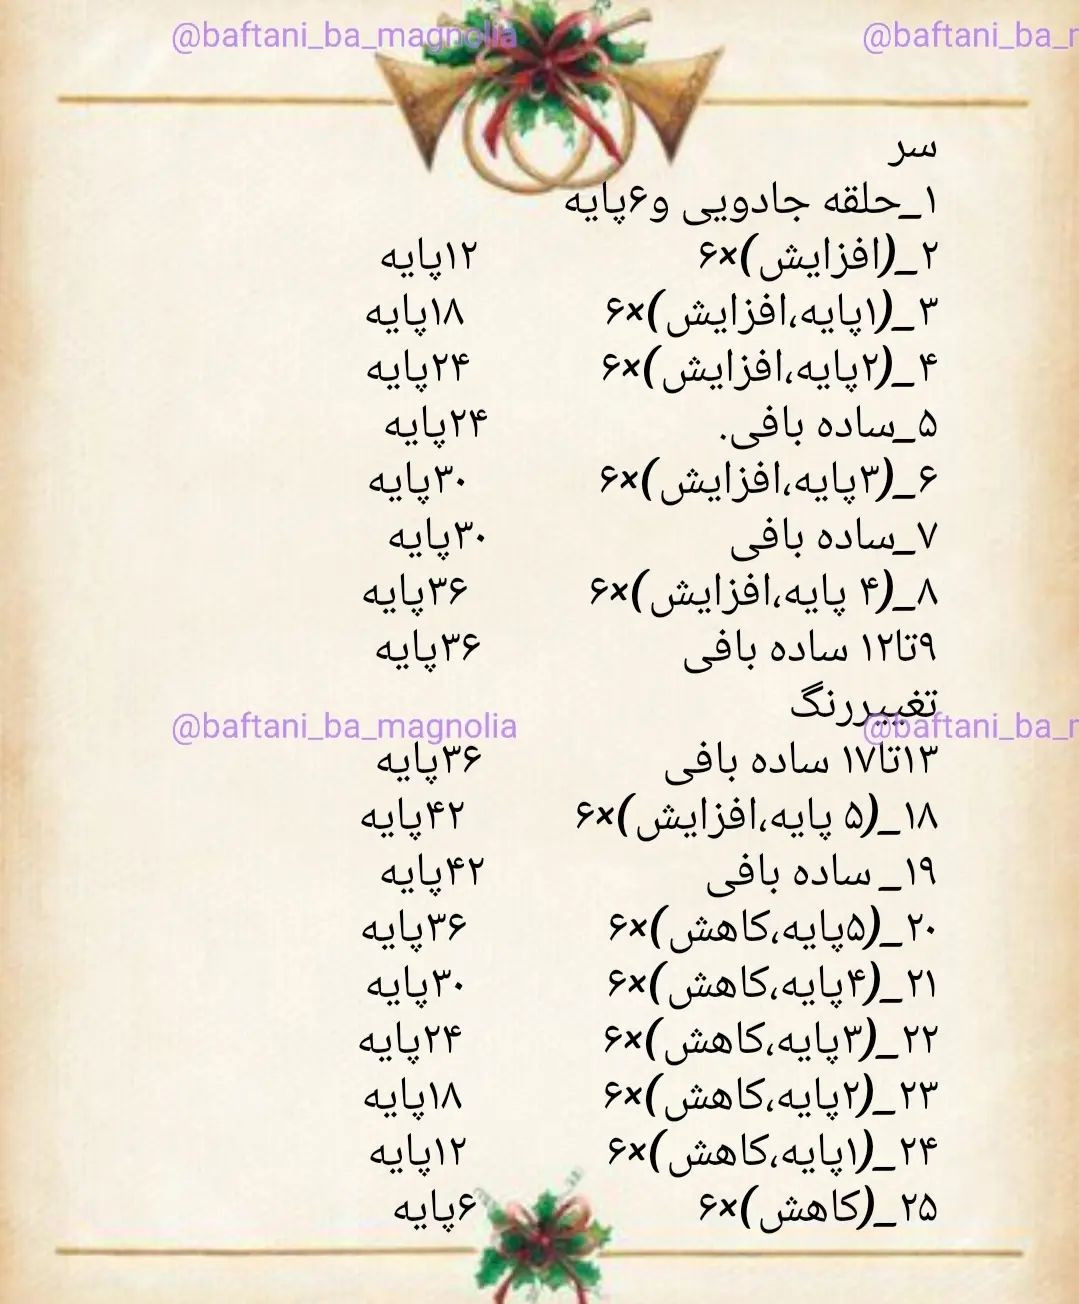 @baftani_ba_magnolia @baftani_ba_
سر
۱_حلقه جادویی و۶پایه
۲_(افزایش)×۶ ۱۲پایه
۳_(۱پایه،افزایش)×۶ ۱۸پایه
۴_(۲پایه،افزایش)×۶ ۲۴پایه
۵_ساده بافی. ۲۴پایه
۶_(۳پایه،افزایش)×۶ ۳۰پایه
۷_ساده بافی ۳۰پایه
۸_(۴ پایه،افزایش)×۶ ۳۶پایه
۹تا۱۲ ساده بافی ۳۶پایه
تغییررنگ
@baftani_ba_magnolia @baftani_ba_
۱۳تا۱۷ ساده بافی ۳۶پایه
۱۸_(۵ پایه،افزایش)×۶ ۴۲پایه
۱۹_ ساده بافی ۴۲پایه
۲۰_(۵پایه،کاهش)×۶ ۳۶پایه
۲۱_(۴پایه،کاهش)×۶ ۳۰پایه
۲۲_(۳پایه،کاهش)×۶ ۲۴پایه
۲۳_(۲پایه،کاهش)×۶ ۱۸پایه
۲۴_(۱پایه،کاهش)×۶ ۱۲پایه
۲۵_(کاهش)×۶ ۶پایه